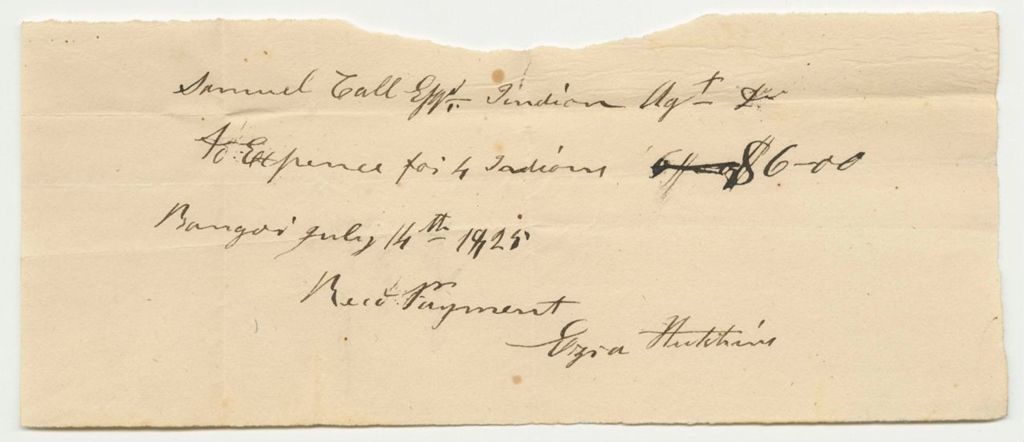 Samuel Call Esqr. Indian Agt Dr
To Expence for 4 Indians $6-00
Bangor July 14th 1825
Recd Payment
Ezra Hutchins